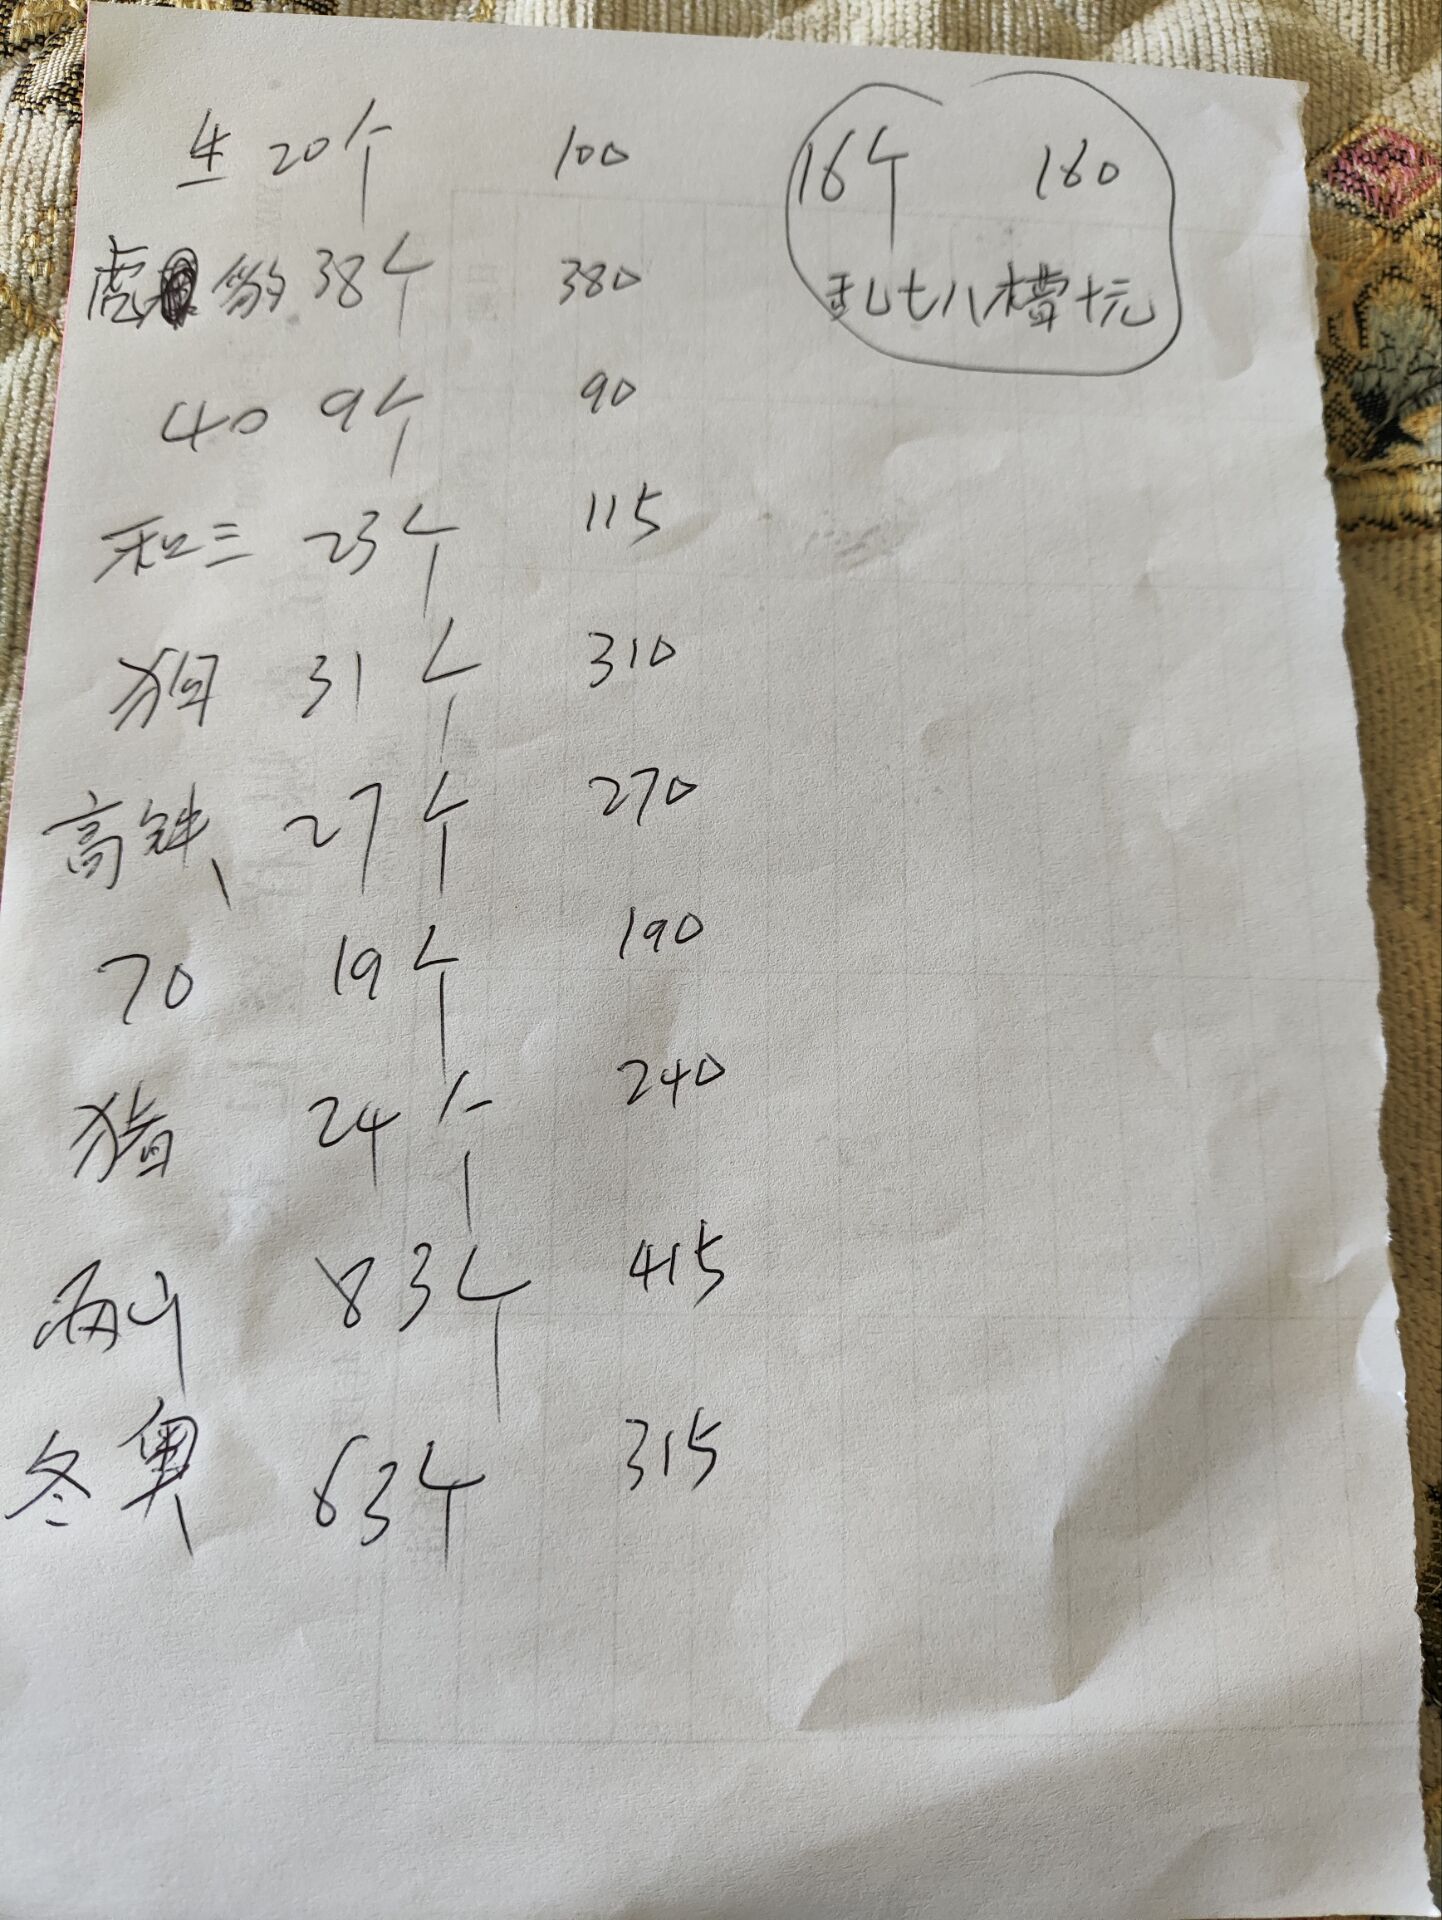 牛 20个 100
虎豹 38个 380
40 9个 90
和三 23个 115
狗 31个 310
高铁 27个 270
70 19个 190
猪 24个 240
两山 83个 415
冬奥 63个 315
16个 160
乱七八糟十元